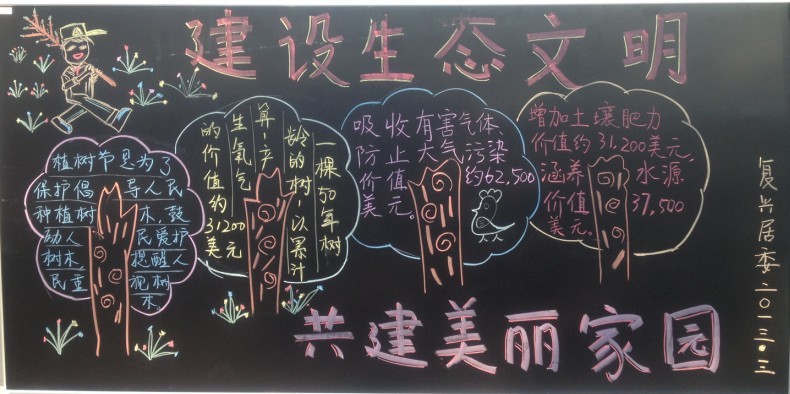 建设生态文明
植树节是为了
保护倡导人民
种植树木，鼓
励人民爱护
树木，提醒人
民重视树
木
一棵50年树
龄的树，以累计
算，产
生氧气
的价值约31200美元
吸收有害气体、
防止大气污染
价值约62,500
美元。
增加土壤肥力
价值约31,200美元，
涵养水源
价值37,500
美元。
共建美丽家园
复兴居委二〇一三.三